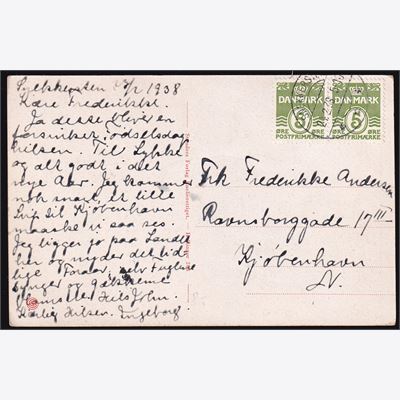 1938
Kære Frederikke.
Ja desse bliver en
forsinket Fødselsdag
hilsen. Til Lykke
og alt godt i det
nye Aar. Jeg kommer
nok snart et lille
til Kjöbenhavn
maaske vi saa ses.
Jeg ligger jo paa Landet
her og nyder det tid
lige Foraar, selv Fuglene
synger og gækkerne
Hils John.
Kærlig Hilsen. Ingeborg
DANMARK
5
ØRE
POSTFRIMÆRKE
DANMARK
5
ØRE
POSTFRIMÆRKE
Frk Frederikke Andersen
Ravnsborggade 17 III
Kjöbenhavn
N.